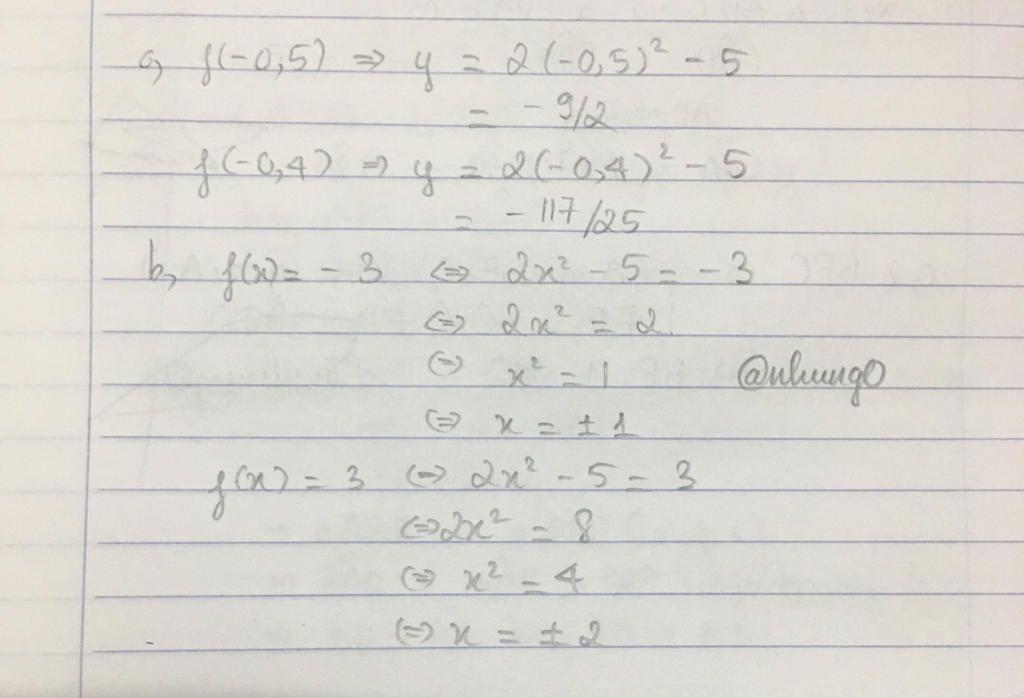 a, f(-0,5) ⇒ y = 2(-0,5)² - 5
= - 9/2
f(-0,4) ⇒ y = 2(-0,4)² - 5
= - 117/25
b, f(x) = - 3 ⇔ 2x² - 5 = - 3
⇔ 2x² = 2.
⇔ x² = 1 @nhung0
⇔ x = ± 1
f(x) = 3 ⇔ 2x² - 5 = 3
⇔ 2x² = 8
⇔ x² = 4
⇔ x = ± 2